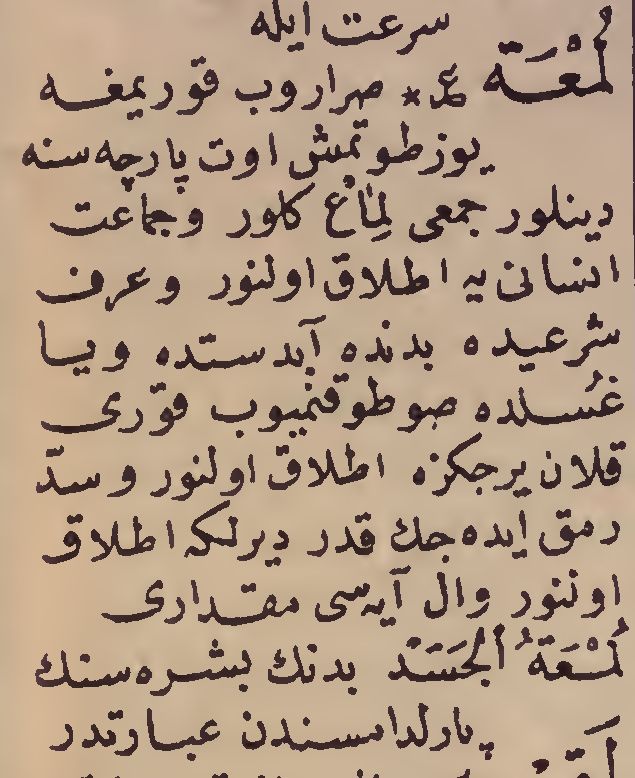 سرعت ايله
لُمْعَة ع * صراروب قوريمغه
يوزطوتمش اوت پارچه سنه
دينلور جمعى لِمَاعْ كلور وجماعت
انسانى يه اطلاق اولنور وعرف
شرعيده بدنده آبدستده ويا
غُسلده صوطوقنميوب قورى
قلان يرجكزه اطلاق اولنور وسدّ
رمق ايده جك قدر ديرلكه اطلاق
اوننور وال آيه سى مقدارى
لُمْعَةُ الْجَسَدْ بدنك بشره سنك
پارلداسندن عبارتدر